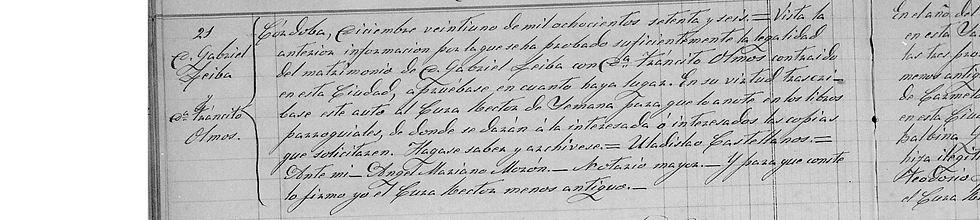 21
D. Gabriel
Leiba
y
Da. Tráncito
Olmos.
Córdoba, Diciembre veintiuno de mil ochocientos setenta y seis.= Vista la
anterior informacion por la que se ha probado suficientemente la legalidad
del matrimonio de D. Gabriel Leiba con Da. Tráncito Olmos contraido
en esta Ciudad, apruébase en cuanto haya lugar. En su virtud trascri-
base este auto al Cura Rector de Semana para que lo anote en los libros
parroquiales, de donde se darán á la interesada ó interesados las copias
que solicitaren. Hagase saber y archivese.= Uladislao Castellanos.=
Ante mi_ Angel Mariano Morón._ Notario mayor._ Y para que conste
lo firmo yo el Cura Rector menos antiguo._
En el año del
en esta
las tres pro
menos anti
de Carmel
en esta Ciu
Balbina
hija ilegit
Teodosio
el Cura R